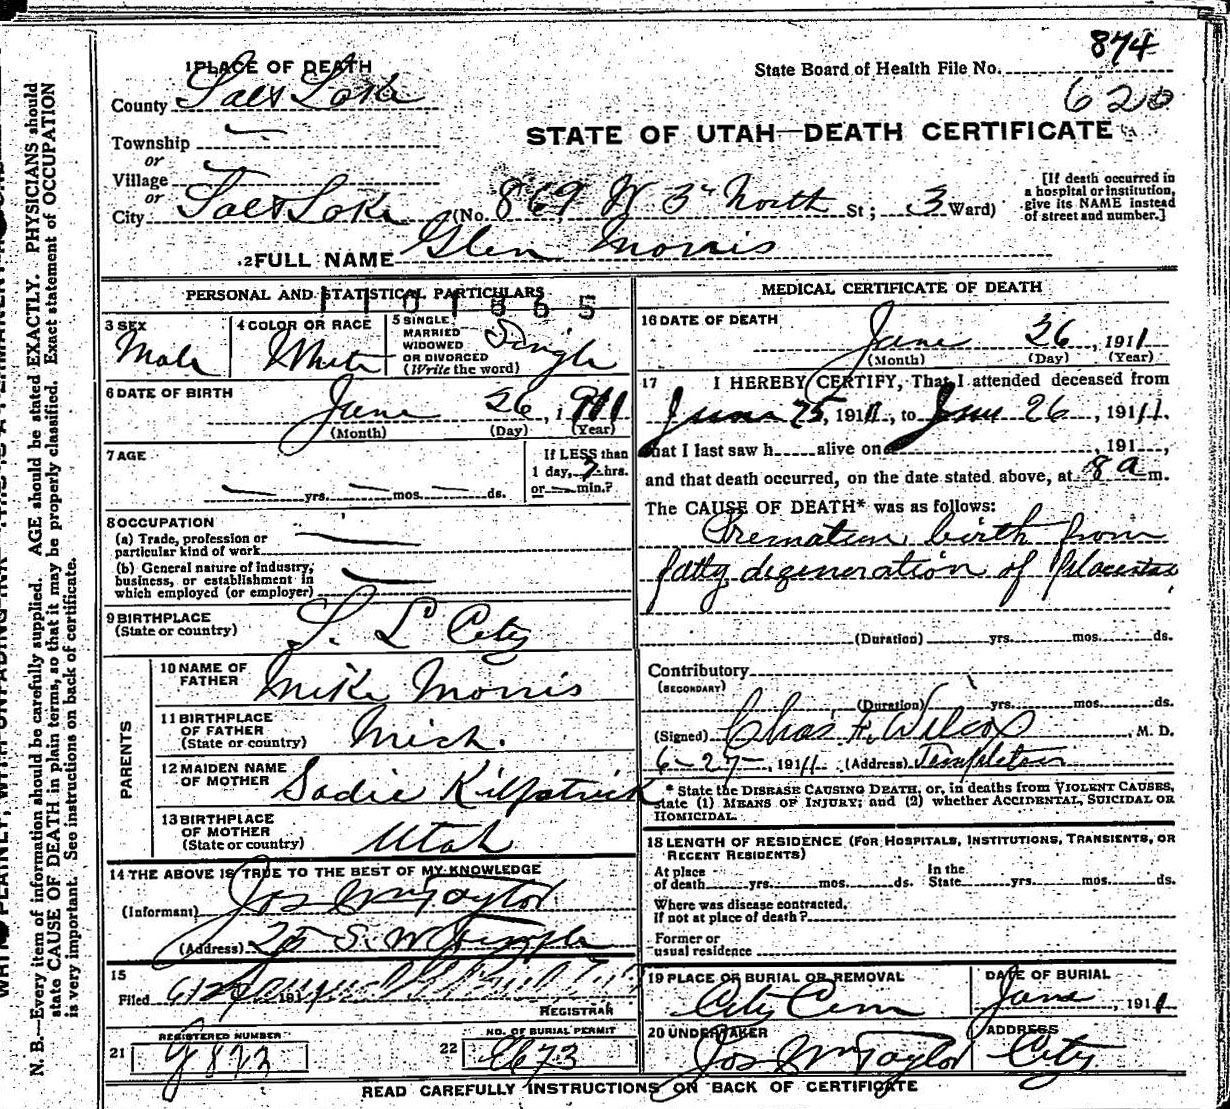 874
State Board of Health File No.
620
1 PLACE OF DEATH
County Salt Lake
STATE OF UTAH—DEATH CERTIFICATE
Township
or
Village
or
City Salt Lake (No. 869 W 3d North St; 3 Ward)
[If death occurred in
a hospital or institution,
give its NAME instead
of street and number.]
2 FULL NAME Glen Morris
PERSONAL AND STATISTICAL PARTICULARS
1101865
3 SEX
Male
4 COLOR OR RACE
White
5 SINGLE
MARRIED
WIDOWED
OR DIVORCED
(Write the word)
Single
6 DATE OF BIRTH
June 26, 1911
(Month) (Day) (Year)
7 AGE
yrs. mos. ds.
If LESS than
1 day, 7 hrs.
or min.?
8 OCCUPATION
(a) Trade, profession or
particular kind of work
(b) General nature of industry,
business, or establishment in
which employed (or employer)
9 BIRTHPLACE
(State or country)
S. L. City
PARENTS
10 NAME OF
FATHER
Mike Morris
11 BIRTHPLACE
OF FATHER
(State or country)
Mich.
12 MAIDEN NAME
OF MOTHER
Sadie Kilpatrick
13 BIRTHPLACE
OF MOTHER
(State or country)
Utah
14 THE ABOVE IS TRUE TO THE BEST OF MY KNOWLEDGE
(Informant) Jos Wm Taylor
(Address) 25 S. W Temple
15
Filed 191
REGISTRAR
REGISTERED NUMBER
21
NO. OF BURIAL PERMIT
22 8673
MEDICAL CERTIFICATE OF DEATH
16 DATE OF DEATH
June 26, 1911
(Month) (Day) (Year)
17 I HEREBY CERTIFY, That I attended deceased from
June 25, 1911, to June 26, 1911.
that I last saw h alive on , 191 ,
and that death occurred, on the date stated above, at 8 a m.
The CAUSE OF DEATH* was as follows:
Premature birth from
fatty degeneration of Placenta
(Duration) yrs. mos. ds.
Contributory
(SECONDARY)
(Duration) yrs. mos. ds.
(Signed) Chas F. Wilcox, M. D.
6-27-, 1911. (Address) Templeton
* State the DISEASE CAUSING DEATH, or, in deaths from VIOLENT CAUSES,
state (1) MEANS OF INJURY; and (2) whether ACCIDENTAL, SUICIDAL OR
HOMICIDAL.
18 LENGTH OF RESIDENCE (FOR HOSPITALS, INSTITUTIONS, TRANSIENTS, OR
RECENT RESIDENTS)
At place
of death yrs. mos. ds.
In the
State yrs. mos. ds.
Where was disease contracted,
if not at place of death?
Former or
usual residence
19 PLACE OF BURIAL OR REMOVAL
City Cem
DATE OF BURIAL
June, 1911
20 UNDERTAKER
Jos Wm Taylor
ADDRESS
City.
READ CAREFULLY INSTRUCTIONS ON BACK OF CERTIFICATE
N. B.—Every item of information should be carefully supplied. AGE should be stated EXACTLY. PHYSICIANS should
state CAUSE OF DEATH in plain terms, so that it may be properly classified. Exact statement of OCCUPATION
is very important. See instructions on back of certificate.